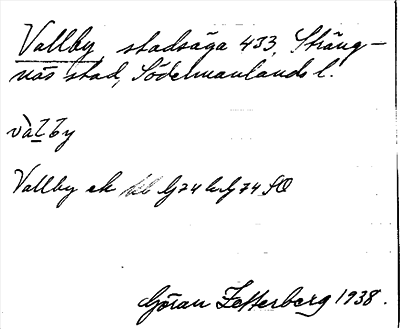 Vallby, stadsäga 433, Sträng-
näs stad, Södermanlands l.
vàlby
Vallby ek G 74 SO
Göran Zetterberg 1938.